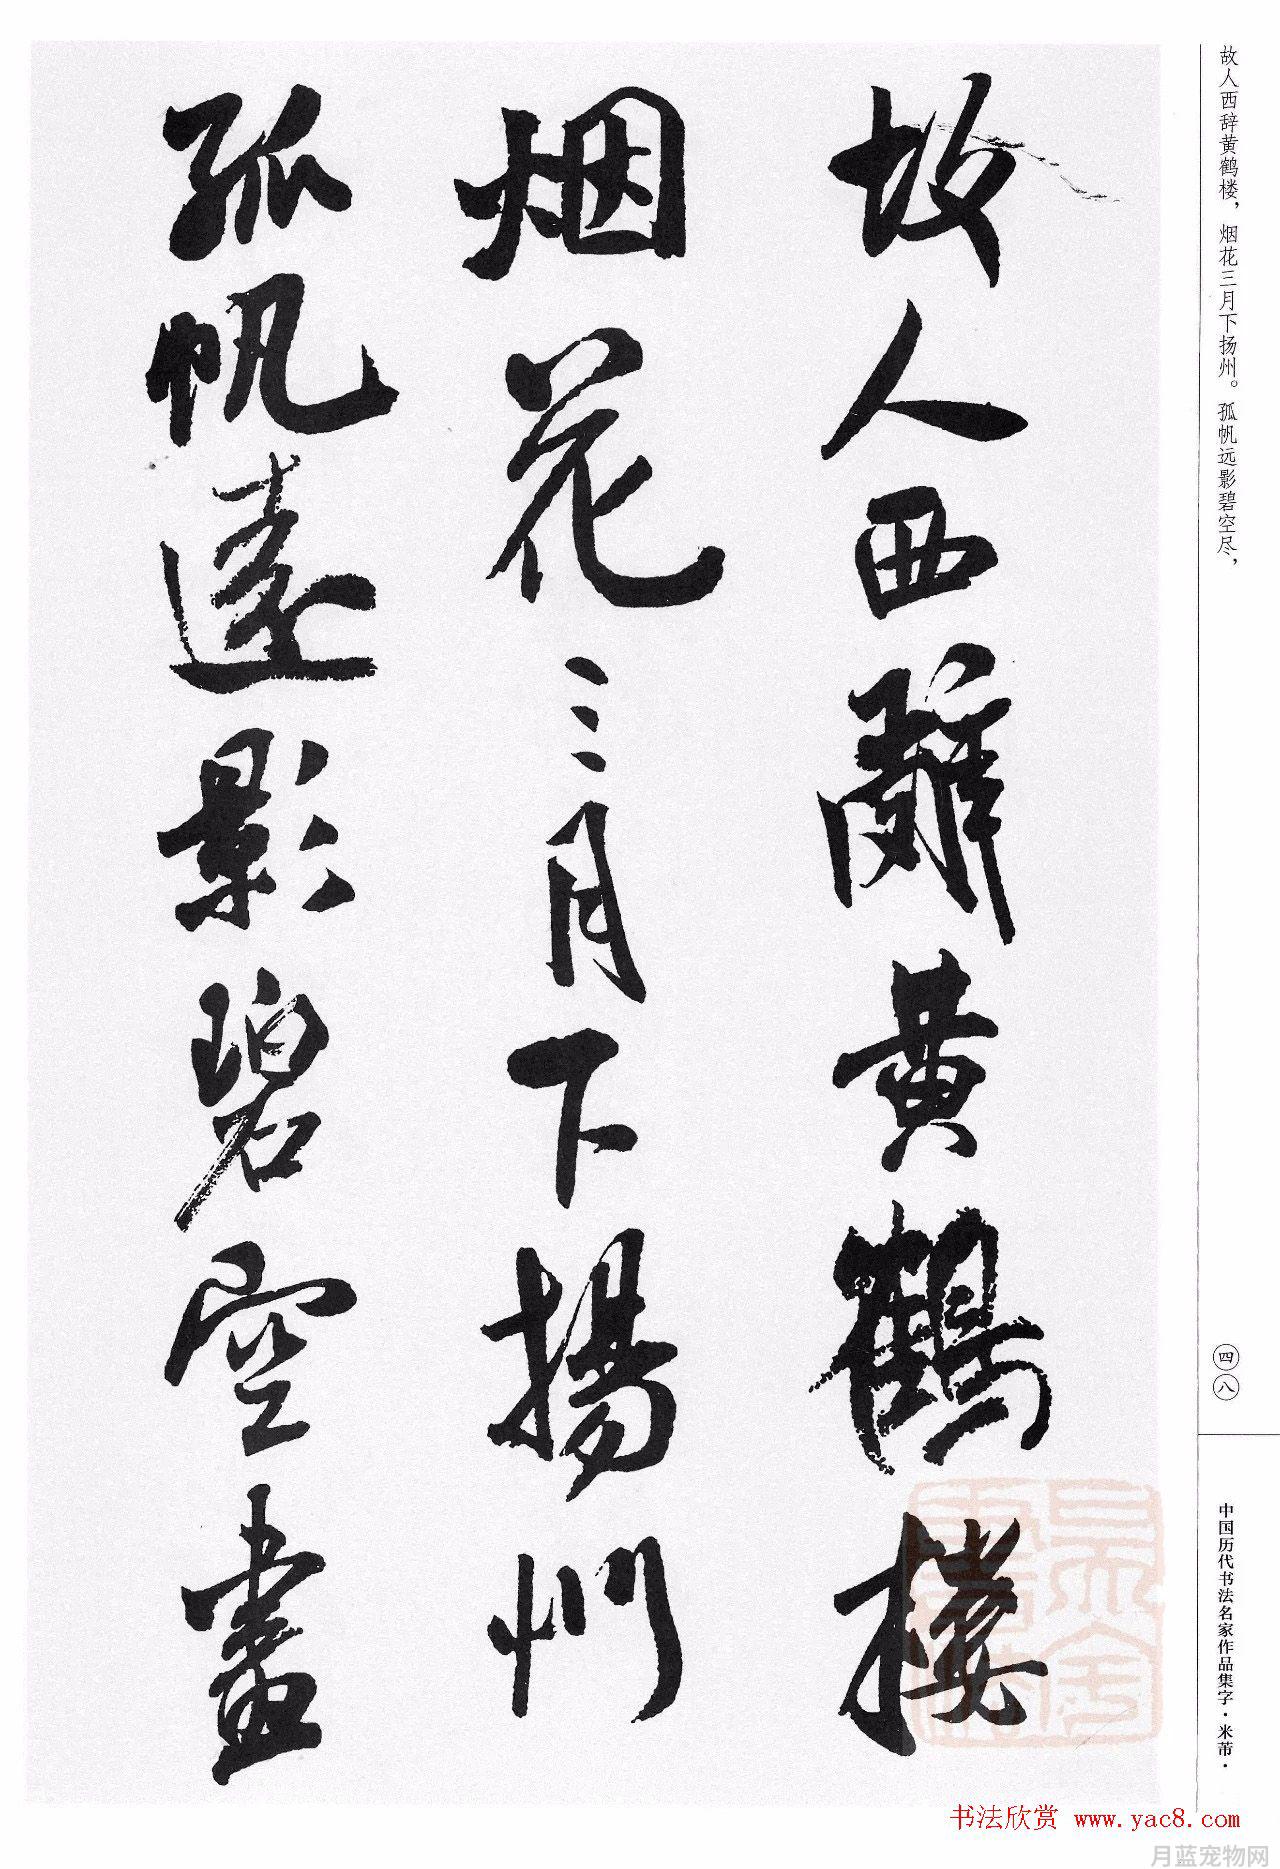 故人西辞黄鹤楼，烟花三月下扬州。孤帆远影碧空尽，
故人西辭黄鶴樓
烟花三月下揚州
孤帆遠影碧空盡
四八
中国历代书法名家作品集字·米芾·
书法欣赏 www.yac8.com
月蓝宠物网